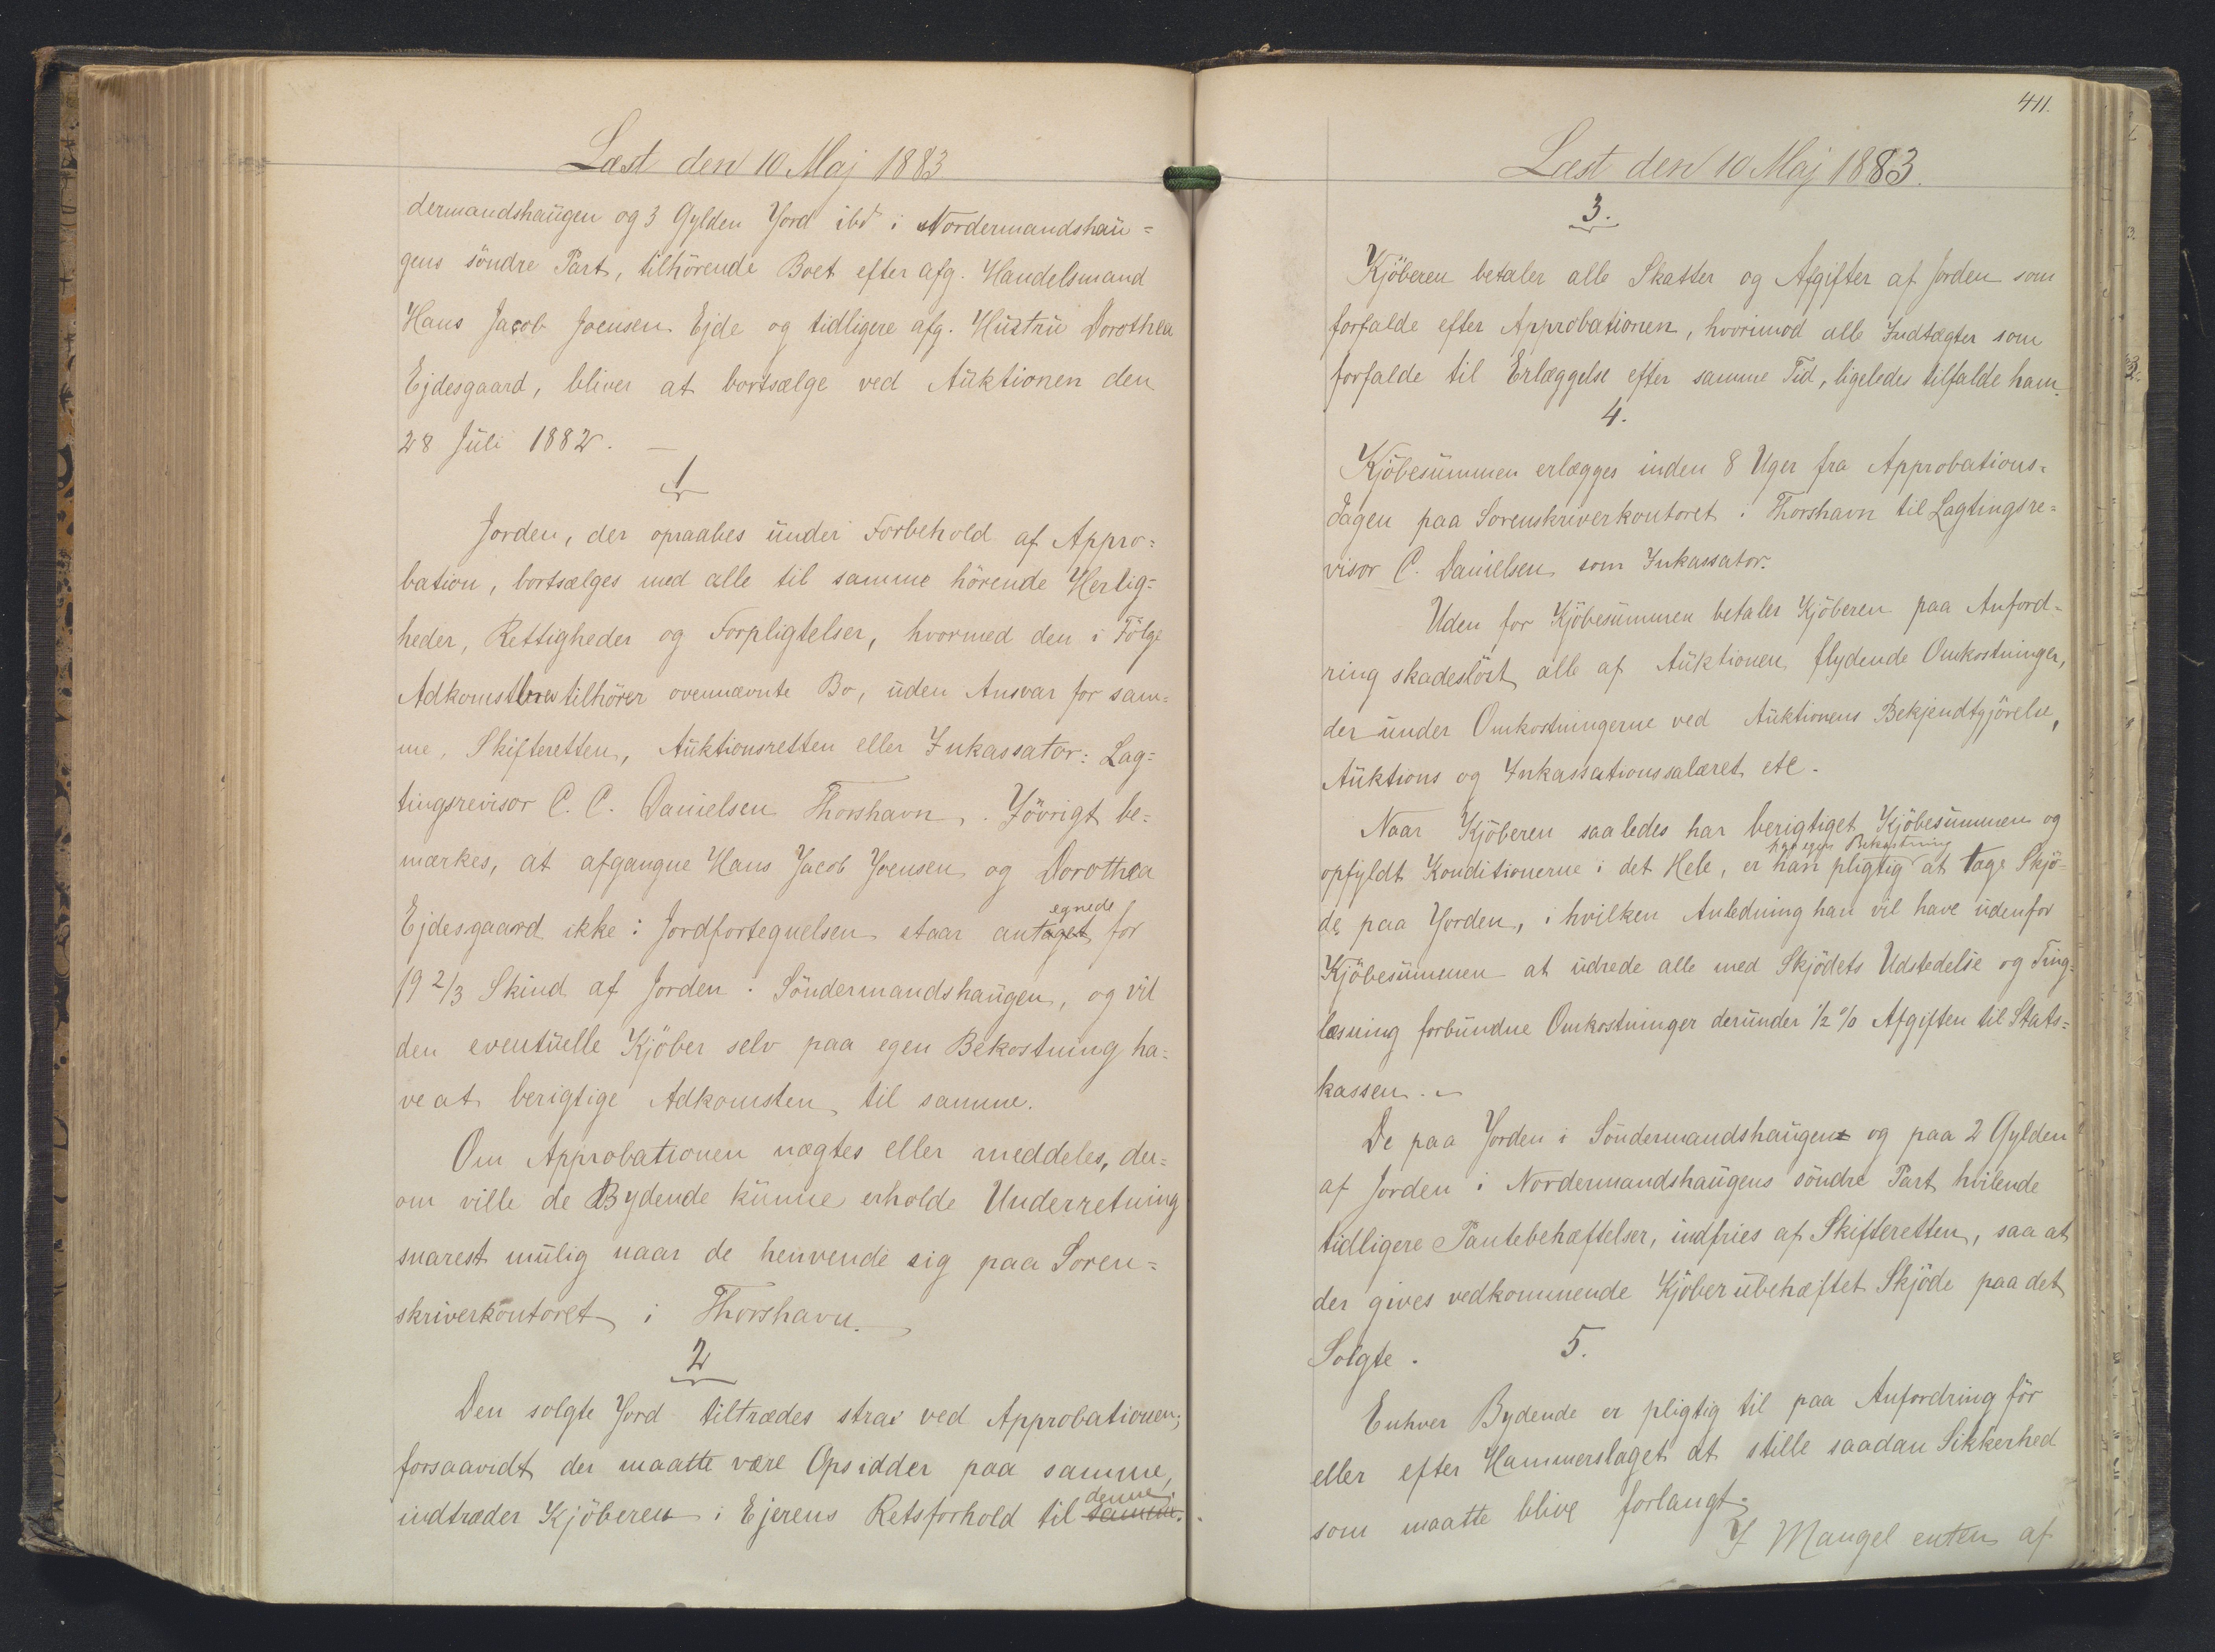 Læst den 10 Maj 1883
dermandshaugen og 3 Gylden Jord ibd i Nordermandshau=
gens söndre Part, tilhörende Boet efter afg. Handelsmand
Hans Jacob Joensen Ejde og tidligere afg. Hustru Dorothea
Ejdesgaard, bliver at bortsælge ved Auktionen den
28 Juli 1882. —
1
Jorden, der opraabes under Forbehold af Appro=
bation, bortsælges med alle til samme hörende Herlig=
heder, Rettigheder og Forpligtelser, hvormed den i Fölge
Adkomstbrev tilhörer ovennævnte Bo, uden Ansvar for sam=
me, Skifteretten, Auktionsretten eller Inkassator: Lag=
tingsrevisor C. C. Danielsen Thorshavn. Iövrigt be=
mærkes, at afgangne Hans Jacob Joensen og Dorothea
egnede
Ejdesgaard ikke i Jordfortegnelsen staar antaget for
19 2/3 Skind af Jorden i Söndermandshaugen, og vil
den eventuelle Kjöber selv paa egen Bekostning ha=
ve at berigtige Adkomsten til samme.
Om Approbationen nægtes eller meddeles, der=
om ville de Bydende kunne erholde Underretning
snarest mulig naar de henvende sig paa Soren=
skriverkontoret i Thorshavn.
2
Den solgte Jord tiltrædes strax ved Approbationen;
forsaavidt der maatte være Opsidder paa samme,
denne.
indtræder Kjöberen i Ejerens Retsforhold til samme.
411.
Læst den 10 Maj 1883.
3.
Kjöberen betaler alle Skatter og Afgifter af Jorden som
forfalde efter Approbationen, hvorimod alle Indtægter som
forfalde til Erlæggelse efter samme Tid, ligeledes tilfalde ham.
4.
Kjöbesummen erlægges inden 8 Uger fra Approbations=
dagen paa Sorenskriverkontoret i Thorshavn til Lagtingsre=
visor C. Danielsen som Inkassator.
Uden for Kjöbesummen betaler Kjöberen paa Anford=
ring skadeslöst alle af Auktionen flydende Omkostninger,
derunder Omkostningerne ved Auktionens Bekjendtgjörelse,
Auktions og Inkassationssalæret etc.
Naar Kjöberen saaledes har berigtiget Kjöbesummen og
paa egen Bekostning
opfyldt Konditionerne i det Hele, er han pligtig at tage Skjö=
de paa Jorden, i hvilken Anledning han vil have udenfor
Kjöbesummen at udrede alle med Skjödets Udstedelse og Ting=
læsning forbundne Omkostninger derunder 1/2 % Afgiften til Stats=
kassen. —
De paa Jorden i Söndermandshaugens og paa 2 Gylden
af Jorden i Nordermandshaugens söndre Part hvilende
tidligere Pantebehæftelser, indfries af Skifteretten, saa at
der gives vedkommende Kjöber ubehæftet Skjöde paa det
Solgte.
5.
Enhver Bydende er pligtig til paa Anfordring för
eller efter Hammerslaget at stille saadan Sikkerhed
som maatte blive forlangt.
I Mangel enten af